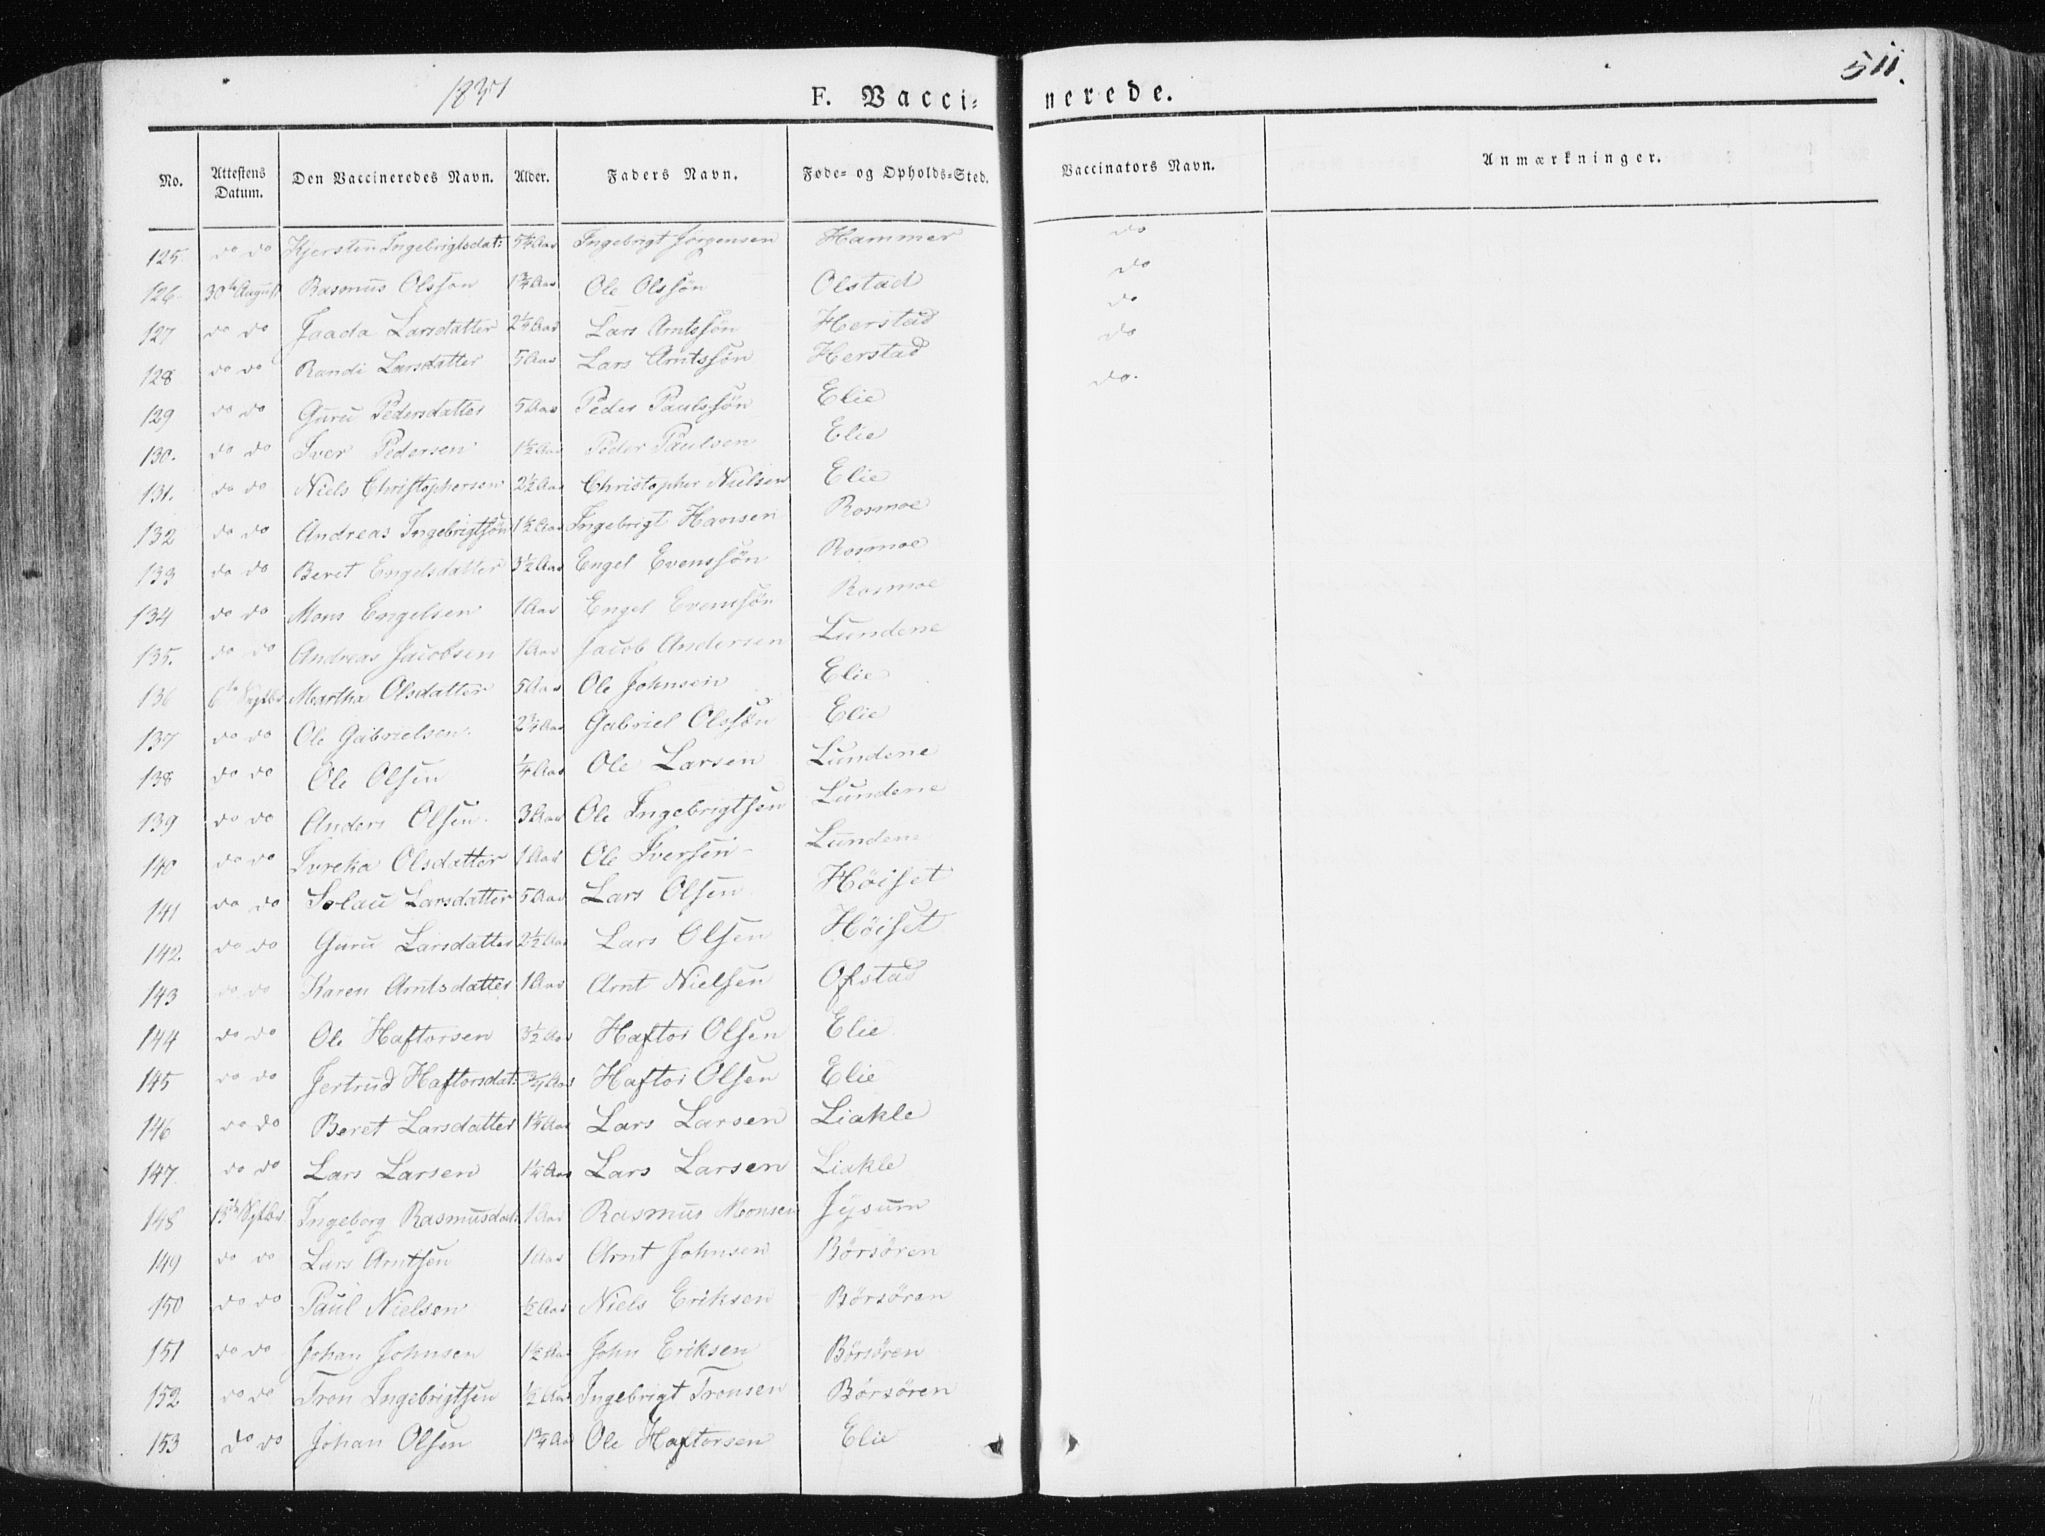 1831 F. Vacci- nerede. 511.
No. Attestens Datum. Den Vaccineredes Navn. Alder. Faders Navn. Føde- og Opholds-Sted. Vaccinators Navn. Anmærkninger.
125. do do Kjersten Ingebrigtsdat: 5¼ Aar Ingebrigt Jørgensen Hammer do
126. 30te August Rasmus Olsson 1¾ Aar Ole Olssøn Olstad do
127 do do Jaada Larsdatter 2¼ Aar Lars Arntssøn Herstad do
128 do do Randi Larsdatter 5 Aar Lars Arntssøn Herstad do
129 do do Guru Pedersdatter 5 Aar Peder Paulssøn Elie do.
130. do do Iver Pedersen 1½ Aar Peder Paulsen Elie
131. do do Niels Christophersen 2½ Aar Christopher Nielsen Elie
132 do do Andreas Ingebrigtsøn 1½ Aar Ingebrigt Hansen Rosmoe
133 do do Beret Engelsdatter 3½ Aar Engel Evenssøn Rosmoe
134 do do Mons Engelsen 1 Aar Engel Evenssøn Rosmoe
135. do do Andreas Jacobsen 1 Aar Jacob Andersen Lundene
136 6te Septbr Martha Olsdatter 5 Aar Ole Johnsen Elie
137 do do Ole Gabrielsen. 2¾ Aar Gabriel Olssøn Elie
138 do do Ole Olsen ¼ Aar Ole Larsen Lundene
139 do do Anders Olsen. 3 Aar Ole Ingebrigtsen Lundene
140 do do Ivreka Olsdatter 1 Aar Ole Iversen Lundene
141 do do Solau Larsdatter 5 Aar Lars Olsen Høiset
142. do do Guru Larsdatter 2½ Aar Lars Olsen Høiset
143 do do Karen Arntsdatter 1 Aar Arnt Nielsen Ofstad
144 do do Ole Haftorsen 3½ Aar Haftor Olsen Elie
145 do do Jertrud Haftorsdat: ¾ Aar Haftor Olsen Elie
146 do do Beret Larsdatter 1¼ Aar Lars Larsen Liakle
147. do do Lars Larsen 1¼ Aar Lars Larsen Liakle
148 15te Septbr Ingeborg Rasmusdat: 1 Aar Rasmus Monsen Jysum
149 do do Lars Arntsen 1 Aar Arnt Johnsen Børsøren
150 do do Paul Nielsen ½ Aar Niels Eriksen Børsøren
151 do do Johan Johnsen 1½ Aar John Eriksen Børsøren
152 do do Tron Ingebrigtsen ½ Aar Ingebrigt Tronsen Børsøren
153 do do Johan Olsen 1¾ Aar Ole Haftorsen Elie